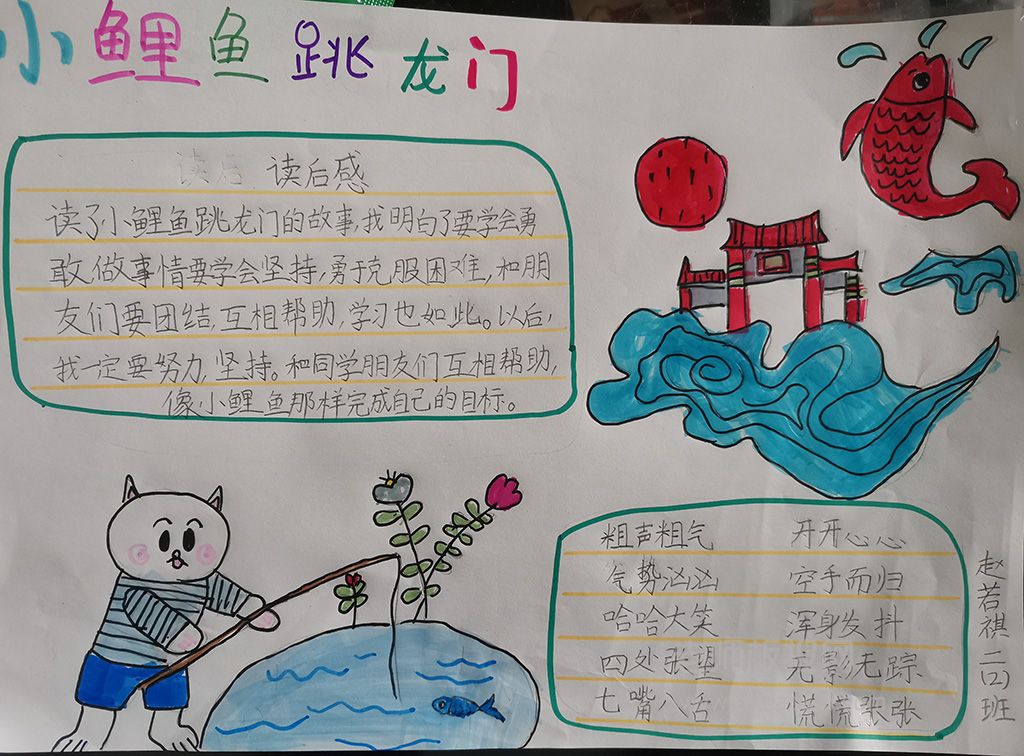 小鲤鱼跳龙门
读后 读后感
读了小鲤鱼跳龙门的故事,我明白了要学会勇
敢,做事情要学会坚持,勇于克服困难,和朋
友们要团结,互相帮助,学习也如此。以后,
我一定要努力,坚持。和同学朋友们互相帮助,
像小鲤鱼那样完成自己的目标。
粗声粗气 开开心心
气势汹汹 空手而归
哈哈大笑 浑身发抖
四处张望 无影无踪
七嘴八舌 慌慌张张
赵若祺二(四)班